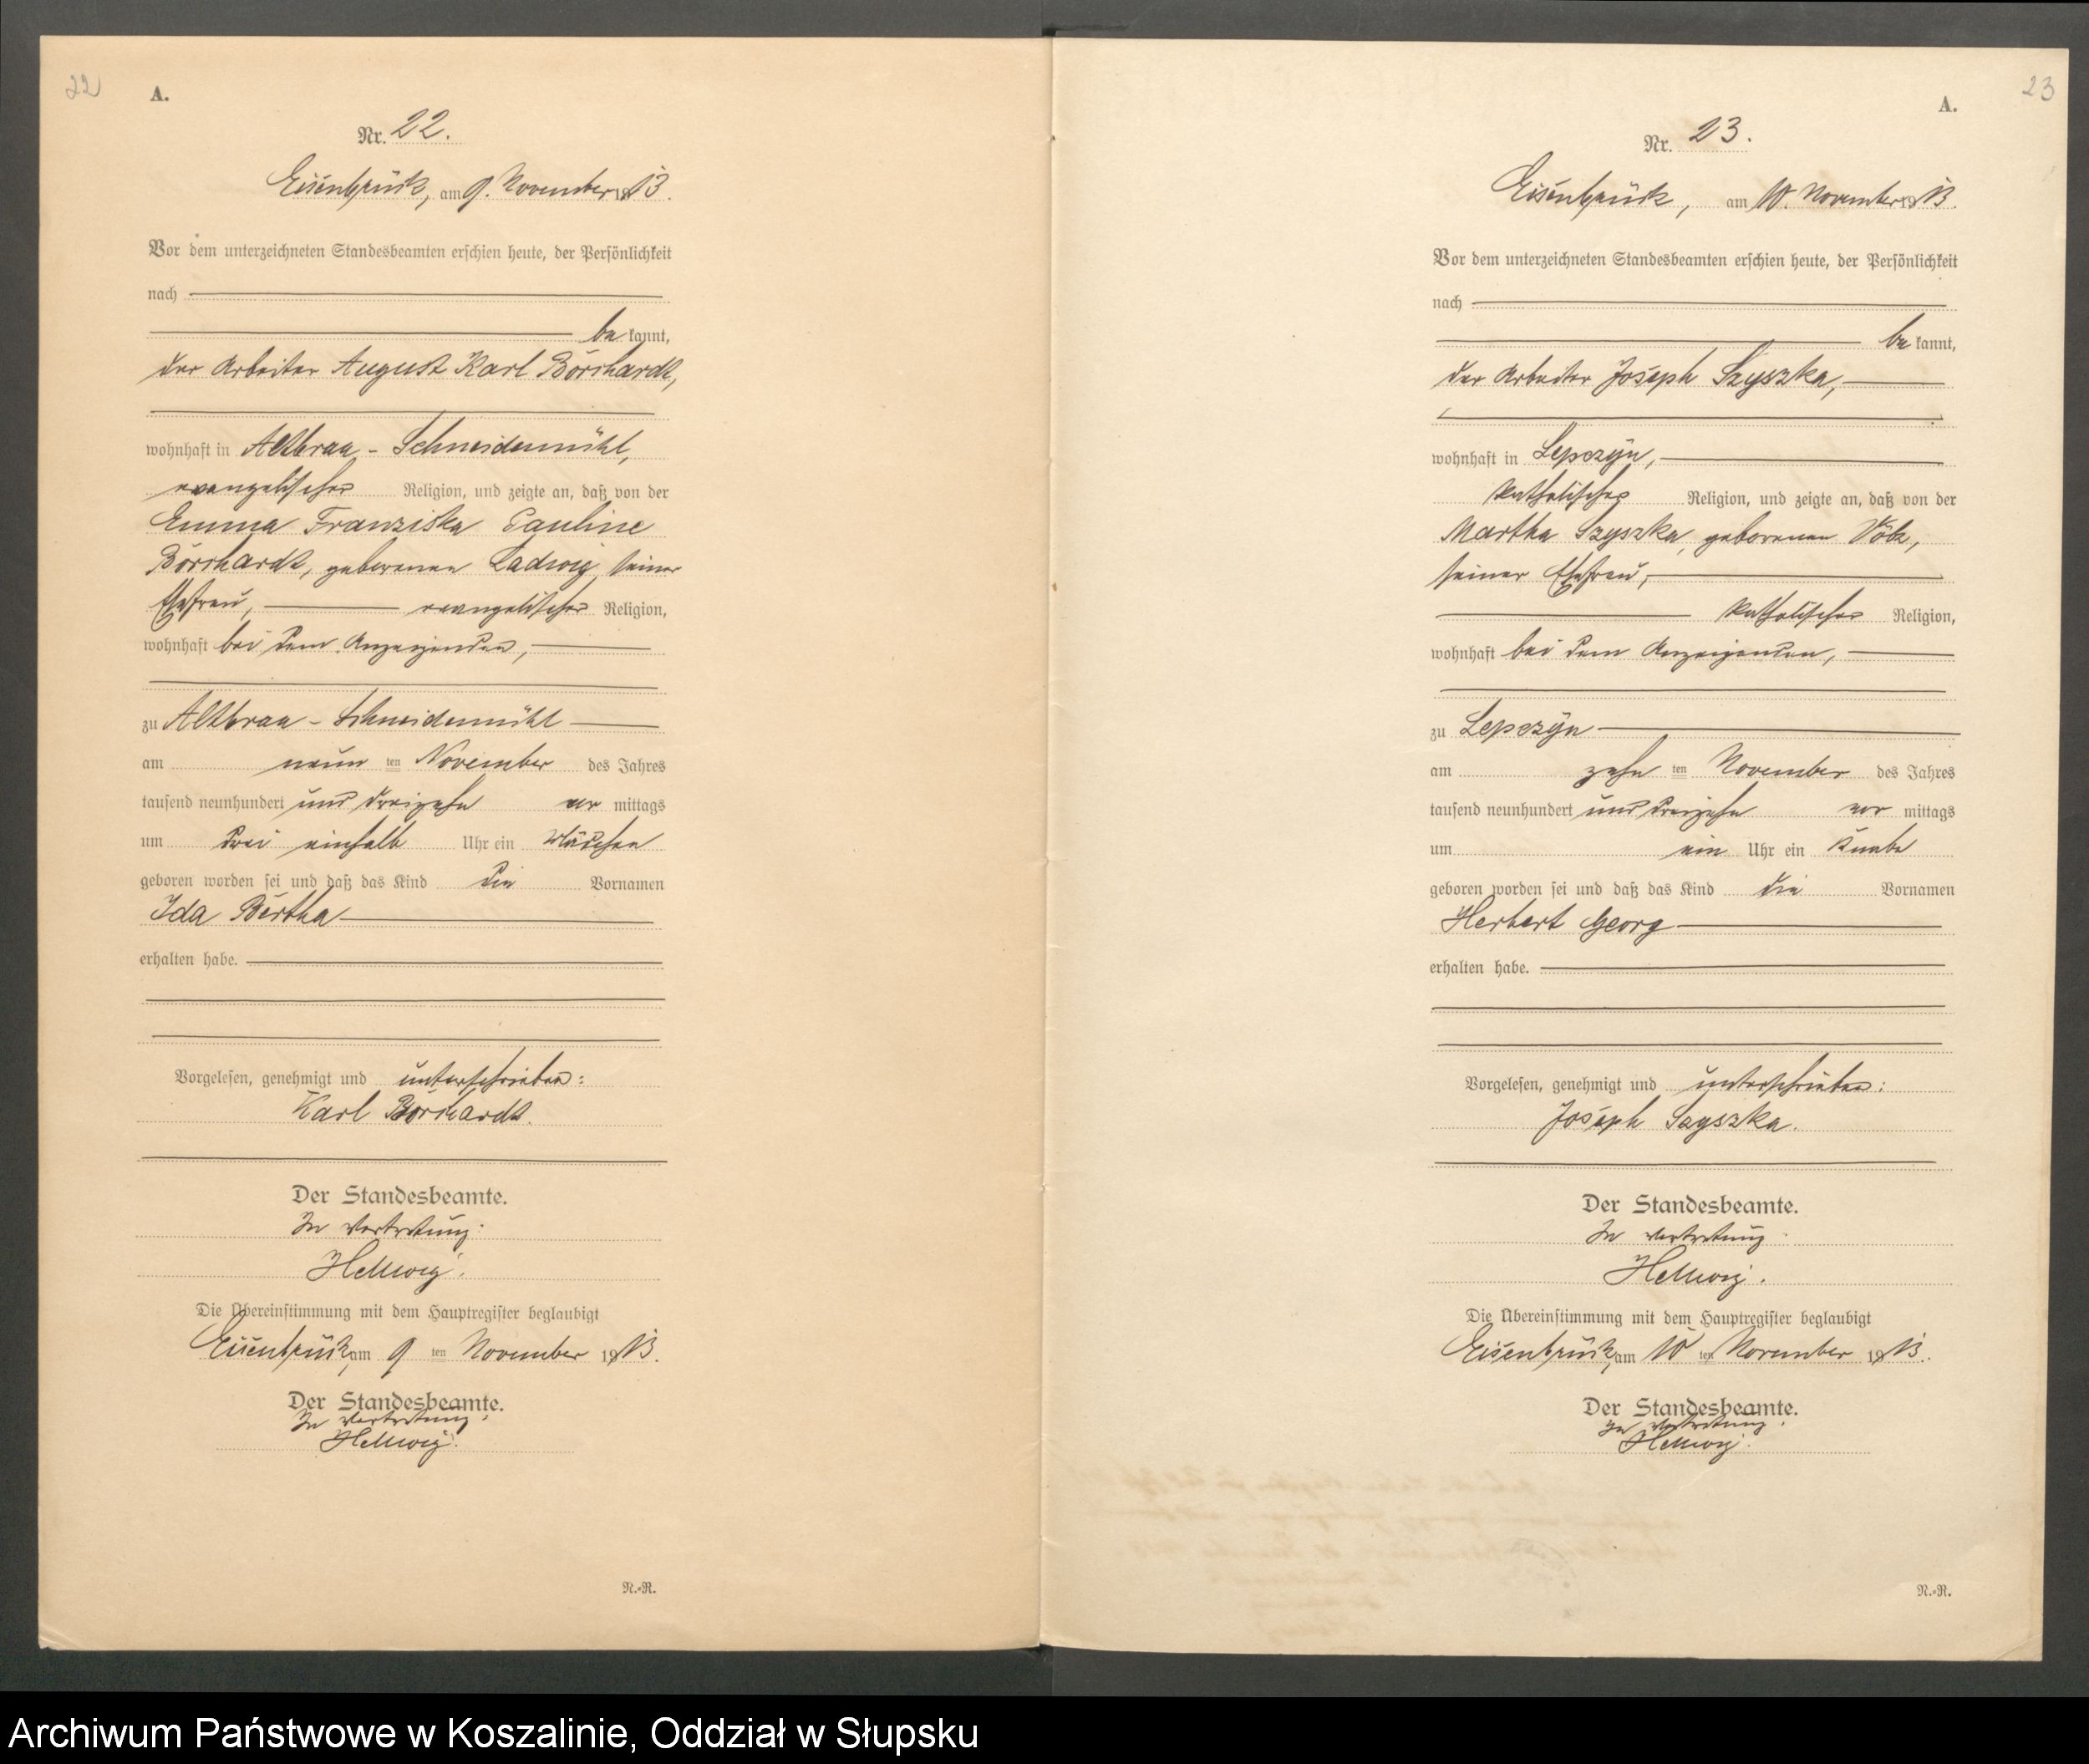 22
A.
Nr. 22.
Eisenbrück, am 9. November 1913.
Vor dem unterzeichneten Standesbeamten erschien heute, der Persönlichkeit
nach
be kannt,
der Arbeiter August Karl Borchardt,
wohnhaft in Altbraa - Schneidemühl,
evangelischer Religion, und zeigte an, daß von der
Emma Franziska Pauline
Borchardt, geborenen Ladwig, seiner
Ehefrau, evangelischer Religion,
wohnhaft bei dem Anzeigenden,
zu Altbraa - Schneidemühl
am neun ten November des Jahres
tausend neunhundert und dreizehn vor mittags
um drei einhalb Uhr ein Mädchen
geboren worden sei und daß das Kind die Vornamen
Ida Bertha
erhalten habe.
Vorgelesen, genehmigt und unterschrieben:
Karl Borchardt.
Der Standesbeamte.
In Vertretung:
Hellwig.
Die Übereinstimmung mit dem Hauptregister beglaubigt
Eisenbrück, am 9 ten November 1913.
Der Standesbeamte.
In Vertretung:
Hellwig.
N.-R.
23
A.
Nr. 23.
Eisenbrück, am 10. November 1913.
Vor dem unterzeichneten Standesbeamten erschien heute, der Persönlichkeit
nach
be kannt,
der Arbeiter Joseph Szyszka,
wohnhaft in Lepczyn,
katholischer Religion, und zeigte an, daß von der
Martha Szyszka, geborenen
seiner Ehefrau,
katholischer Religion,
wohnhaft bei dem Anzeigenden,
zu Lepczyn
am zehn ten November des Jahres
tausend neunhundert und dreizehn vor mittags
um ein Uhr ein Knabe
geboren worden sei und daß das Kind die Vornamen
Herbert Georg
erhalten habe.
Vorgelesen, genehmigt und unterschrieben:
Joseph Szyszka.
Der Standesbeamte.
In Vertretung:
Hellwig.
Die Übereinstimmung mit dem Hauptregister beglaubigt
Eisenbrück, am 10 ten November 1913.
Der Standesbeamte.
In Vertretung:
Hellwig.
N.-R.
Archiwum Państwowe w Koszalinie, Oddział w Słupsku